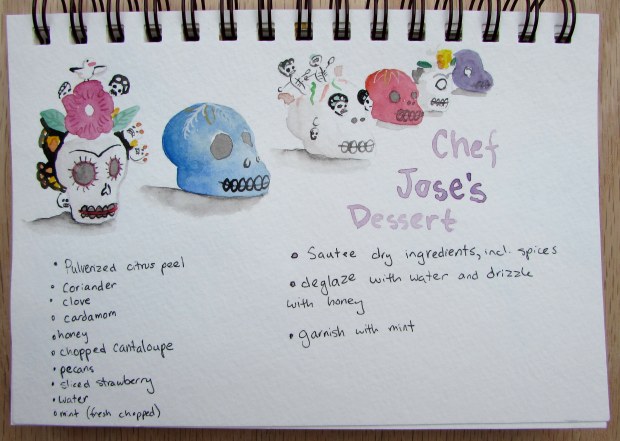 Chef
Jose's
Dessert
• Pulverized citrus peel
• Coriander
• clove
• cardamom
• honey
• chopped cantaloupe
• pecans
• sliced strawberry
• water
• mint (fresh chopped)
• Sautee dry ingredients, incl. spices
• deglaze with water and drizzle
with honey
• garnish with mint